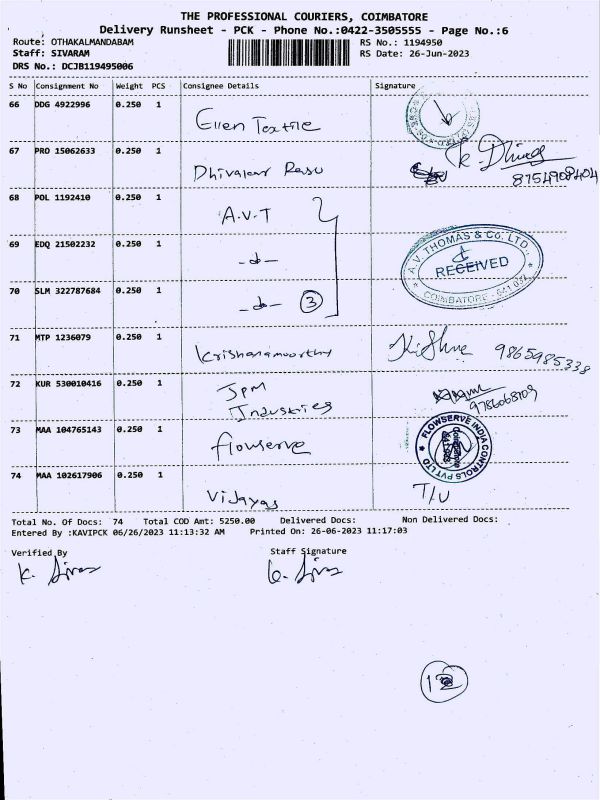 THE PROFESSIONAL COURIERS, COIMBATORE
Delivery Runsheet - PCK - Phone No.:0422-3505555 - Page No.:6
Route: OTHAKALMANDABAM RS No.: 1194950
Staff: SIVARAM RS Date: 26-Jun-2023
DRS No.: DCJB119495006
S No Consignment No Weight PCS Consignee Details Signature
66 DDG 4922996 0.250 1
Ellen Textile
67 PRO 15062633 0.250 1 K. Dhinag
Dhivakar Rasu 8754908404
68 POL 1192410 0.250 1
A.V.T
69 EDQ 21502232 0.250 1 A.V. THOMAS & Co. LTD.,
-do- RECEIVED
70 SLM 322787684 0.250 1 COIMBATORE - 641 032
-do- 3
71 MTP 1236079 0.250 1
Krishanamoorthy 9865985338
72 KUR 530010416 0.250 1
JPM
Industries 9786068109
73 MAA 104765143 0.250 1 FLOWSERVE INDIA CONTROLS PVT LTD
flowserve
74 MAA 102617906 0.250 1
Vijayas T/U
Total No. Of Docs: 74 Total COD Amt: 5250.00 Delivered Docs: Non Delivered Docs:
Entered By :KAVIPCK 06/26/2023 11:13:32 AM Printed On: 26-06-2023 11:17:03
Verified By Staff Signature